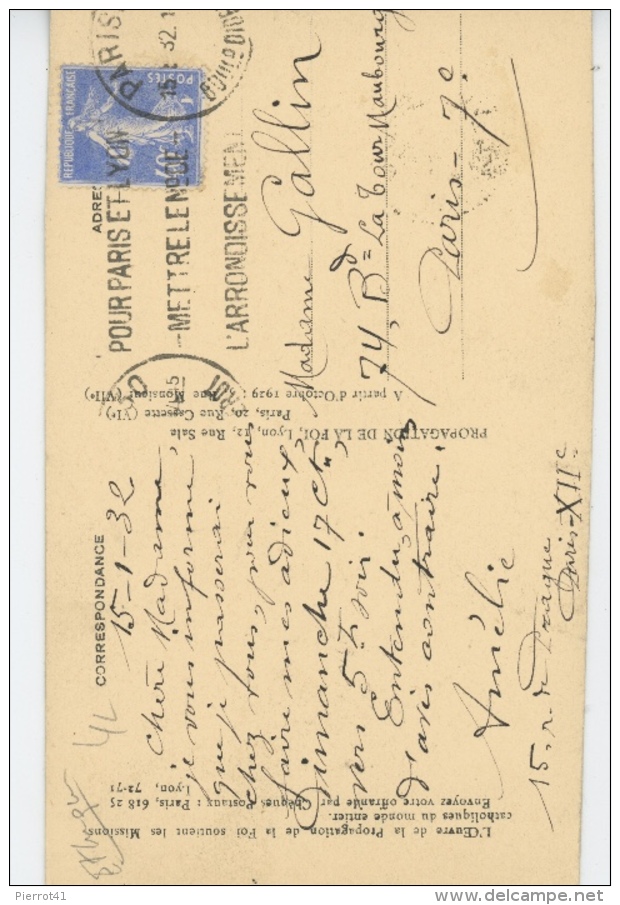 CORRESPONDANCE
15-1-32
Chère Madame,
je vous informe
que je passerai
chez vous, pour vous
faire mes adieux,
Dimanche 17 Ct,
vers 5 h soir.
Entendu, à moins
d'avis contraire.
Amélie
15, r. de Prague
Paris-XIIe
ADRES
Madame Gallin
74, Bd La Tour Maubourg
Paris-7e
PARIS
15-1 32
BOULD DIDEROT
POUR PARIS ET LYON
METTRE LE N° DE
L'ARRONDISSEMENT
REPUBLIQUE FRANÇAISE
POSTES
PROPAGATION DE LA FOI, Lyon, 12, Rue Sala
Paris, 20, Rue Cassette (VIe)
A partir d'Octobre 1929 : Rue Monsieur (VIIe)
L'Œuvre de la Propagation de la Foi soutient les Missions
catholiques du monde entier.
Envoyez votre offrande par Chèques Postaux : Paris, 618 25
Lyon, 72-71
Pierrot41
www.delcampe.net